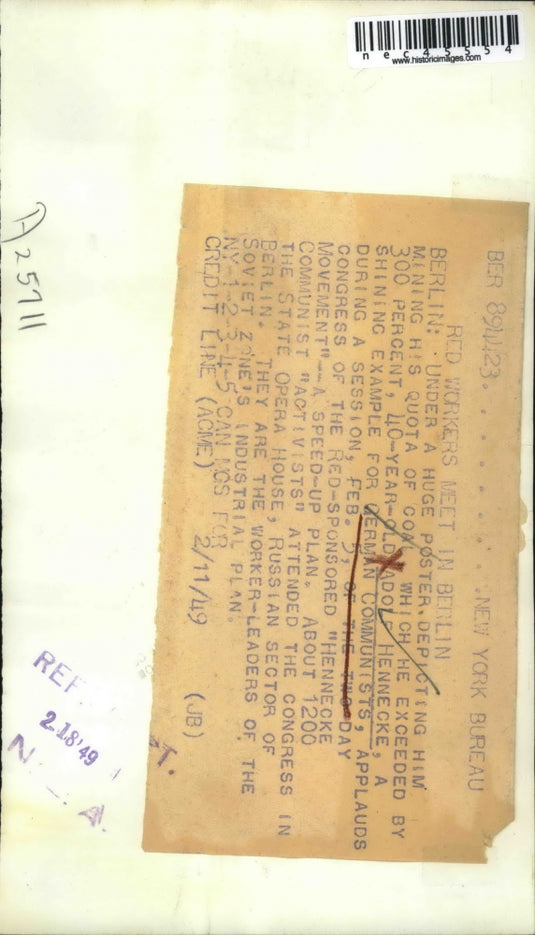 nec45554
www.historicimages.com
BER 894423. . . . . . . . .NEW YORK BUREAU
RED WORKERS MEET IN BERLIN
BERLIN: UNDER A HUGE POSTER, DEPICTING HIM
MINING HIS QUOTA OF COAL WHICH HE EXCEEDED BY
300 PERCENT, 40-YEAR-OLD ADOLF HENNECKE, A
SHINING EXAMPLE FOR GERMAN COMMUNISTS, APPLAUDS
DURING A SESSION, FEB. 5, OF THE TWO DAY
CONGRESS OF THE RED-SPONSORED "HENNECKE
MOVEMENT"--A SPEED-UP PLAN. ABOUT 1200
COMMUNIST "ACTIVISTS" ATTENDED THE CONGRESS IN
THE STATE OPERA HOUSE, RUSSIAN SECTOR OF
BERLIN. THEY ARE THE WORKER-LEADERS OF THE
SOVIET ZONE'S INDUSTRIAL PLAN.
NY-1-2-3-4-5 CAN MGS FOR
CREDIT LINE (ACME) 2/11/49 (JB)
A25711
REF. PT.
2-18'49
N. E. A.